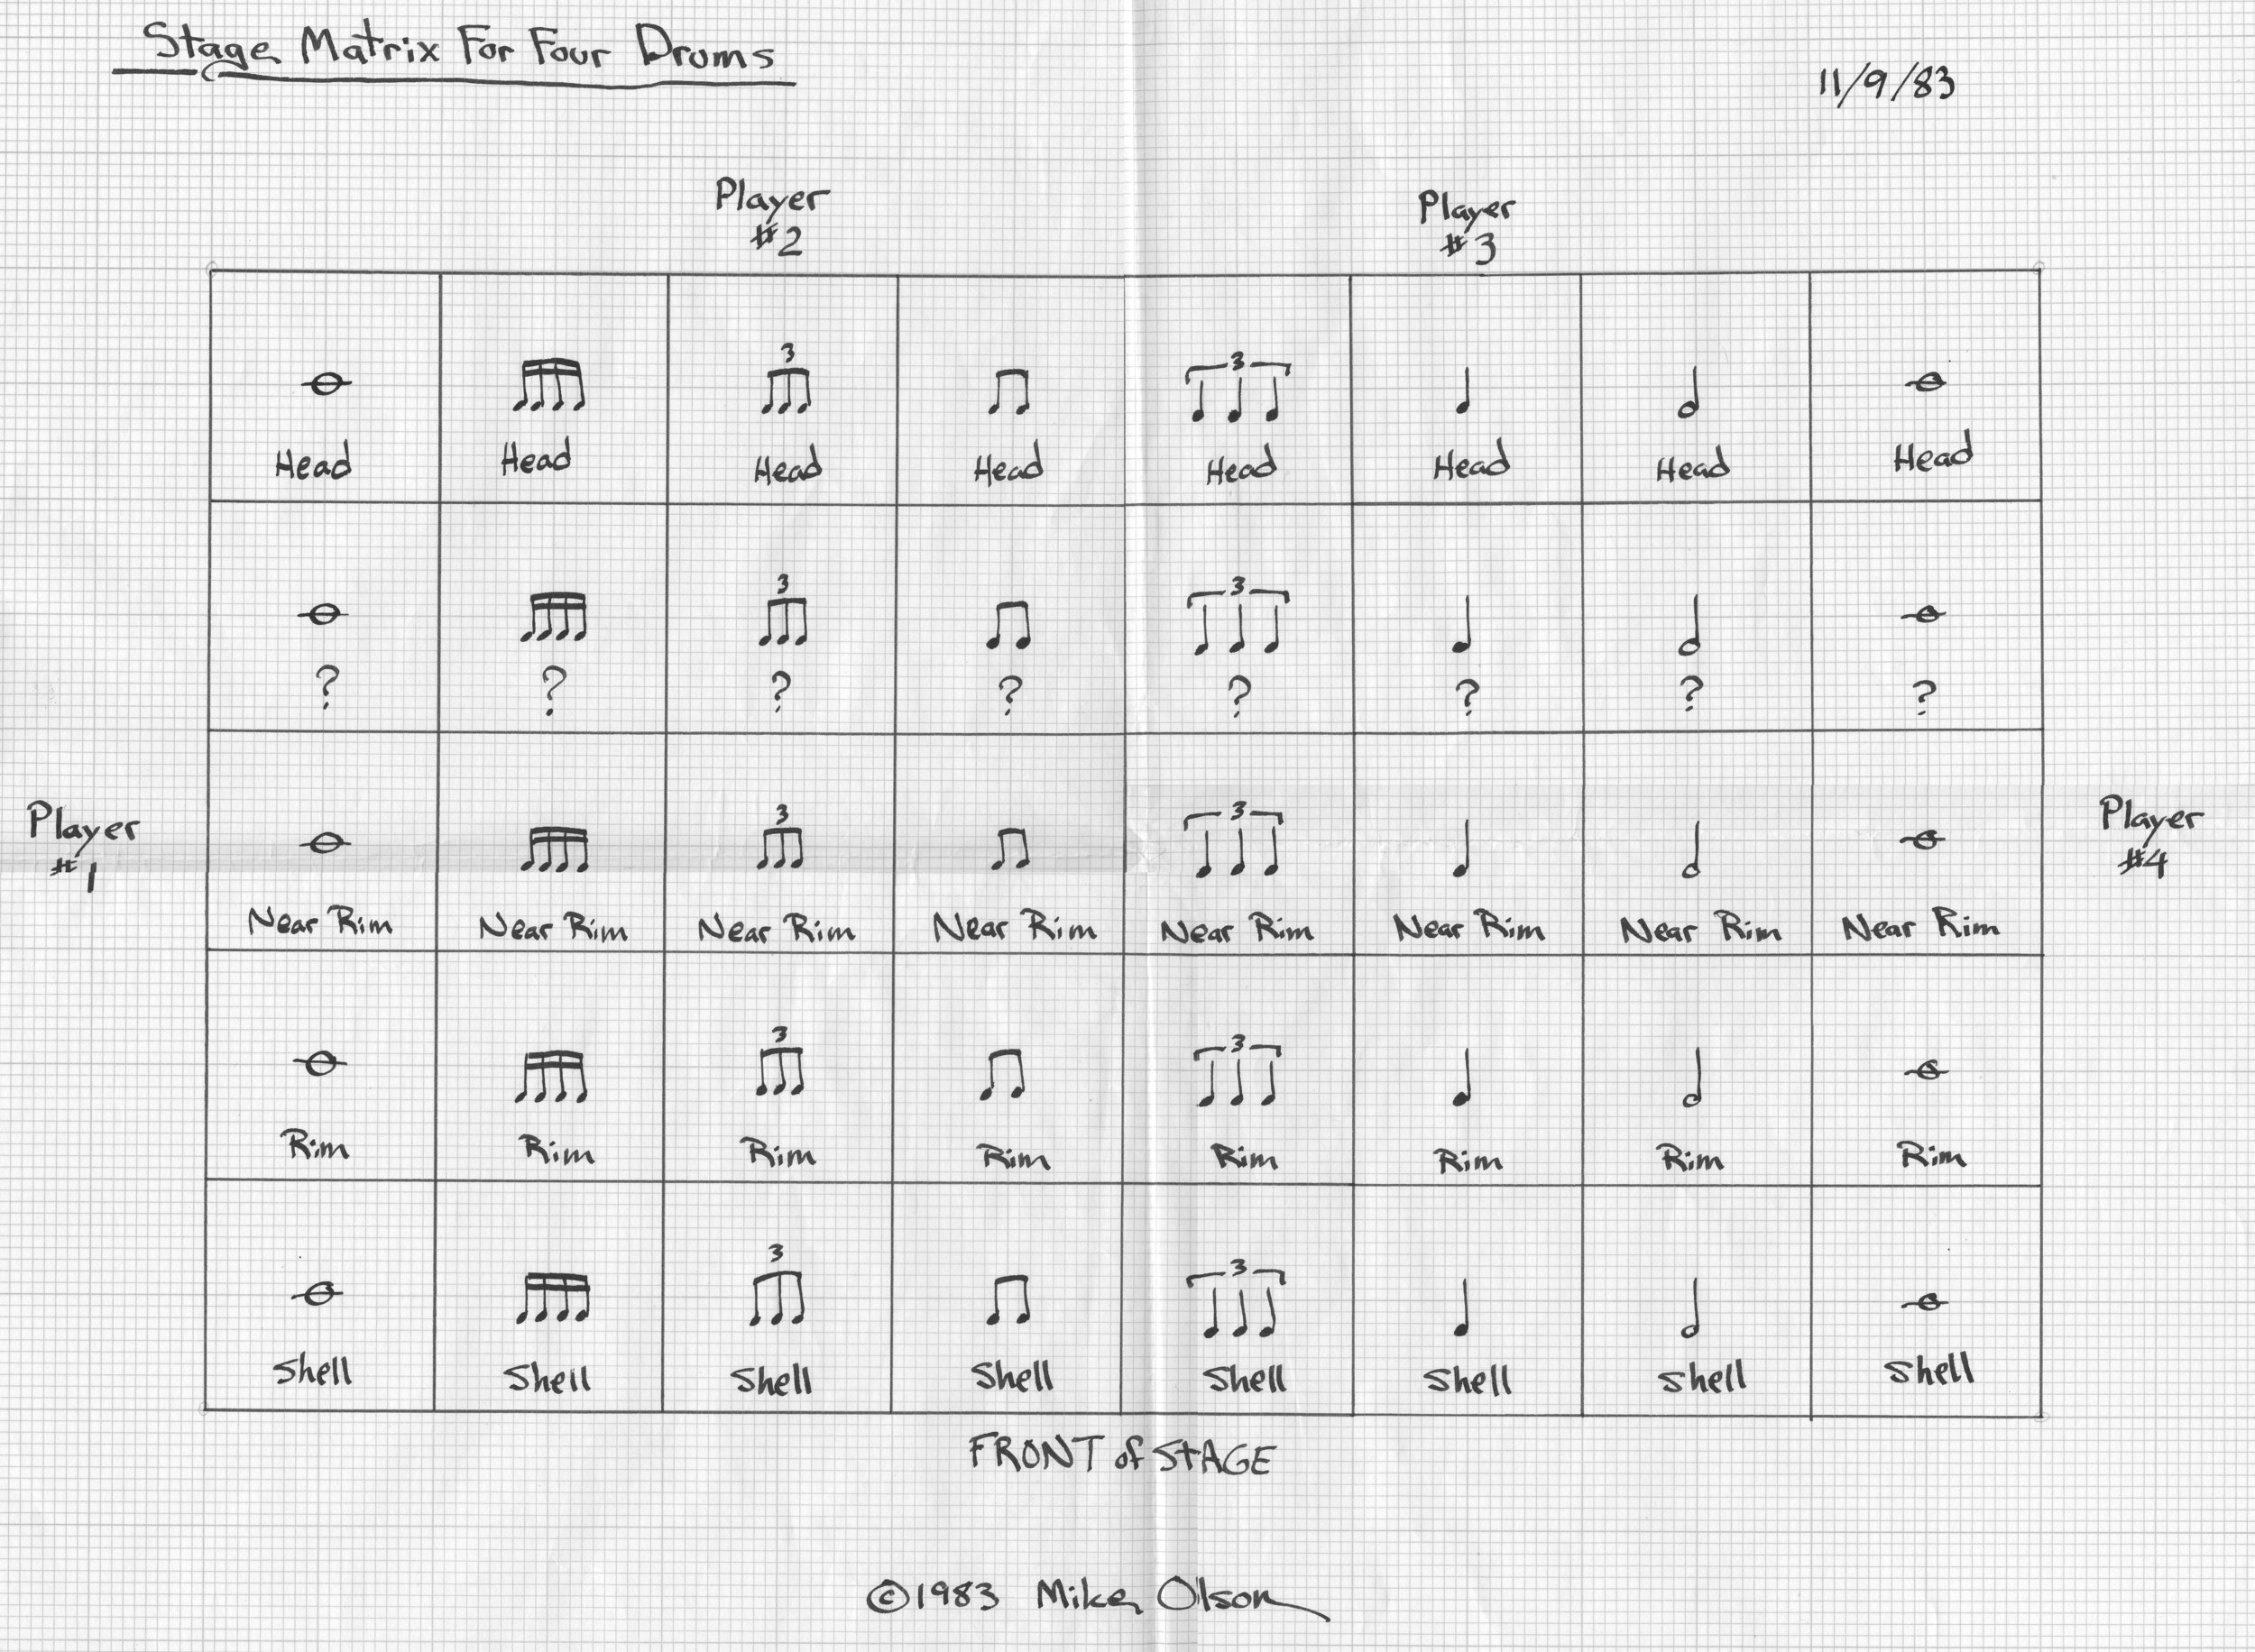 Stage Matrix For Four Drums
11/9/83
Player
#2
Player
#3
3 3
Head Head Head Head Head Head Head Head
3 3
? ? ? ? ? ? ? ?
Player
#1
3 3
Near Rim Near Rim Near Rim Near Rim Near Rim Near Rim Near Rim Near Rim
Player
#4
3 3
Rim Rim Rim Rim Rim Rim Rim Rim
3 3
Shell Shell Shell Shell Shell Shell Shell Shell
FRONT of STAGE
©1983 Mike Olson